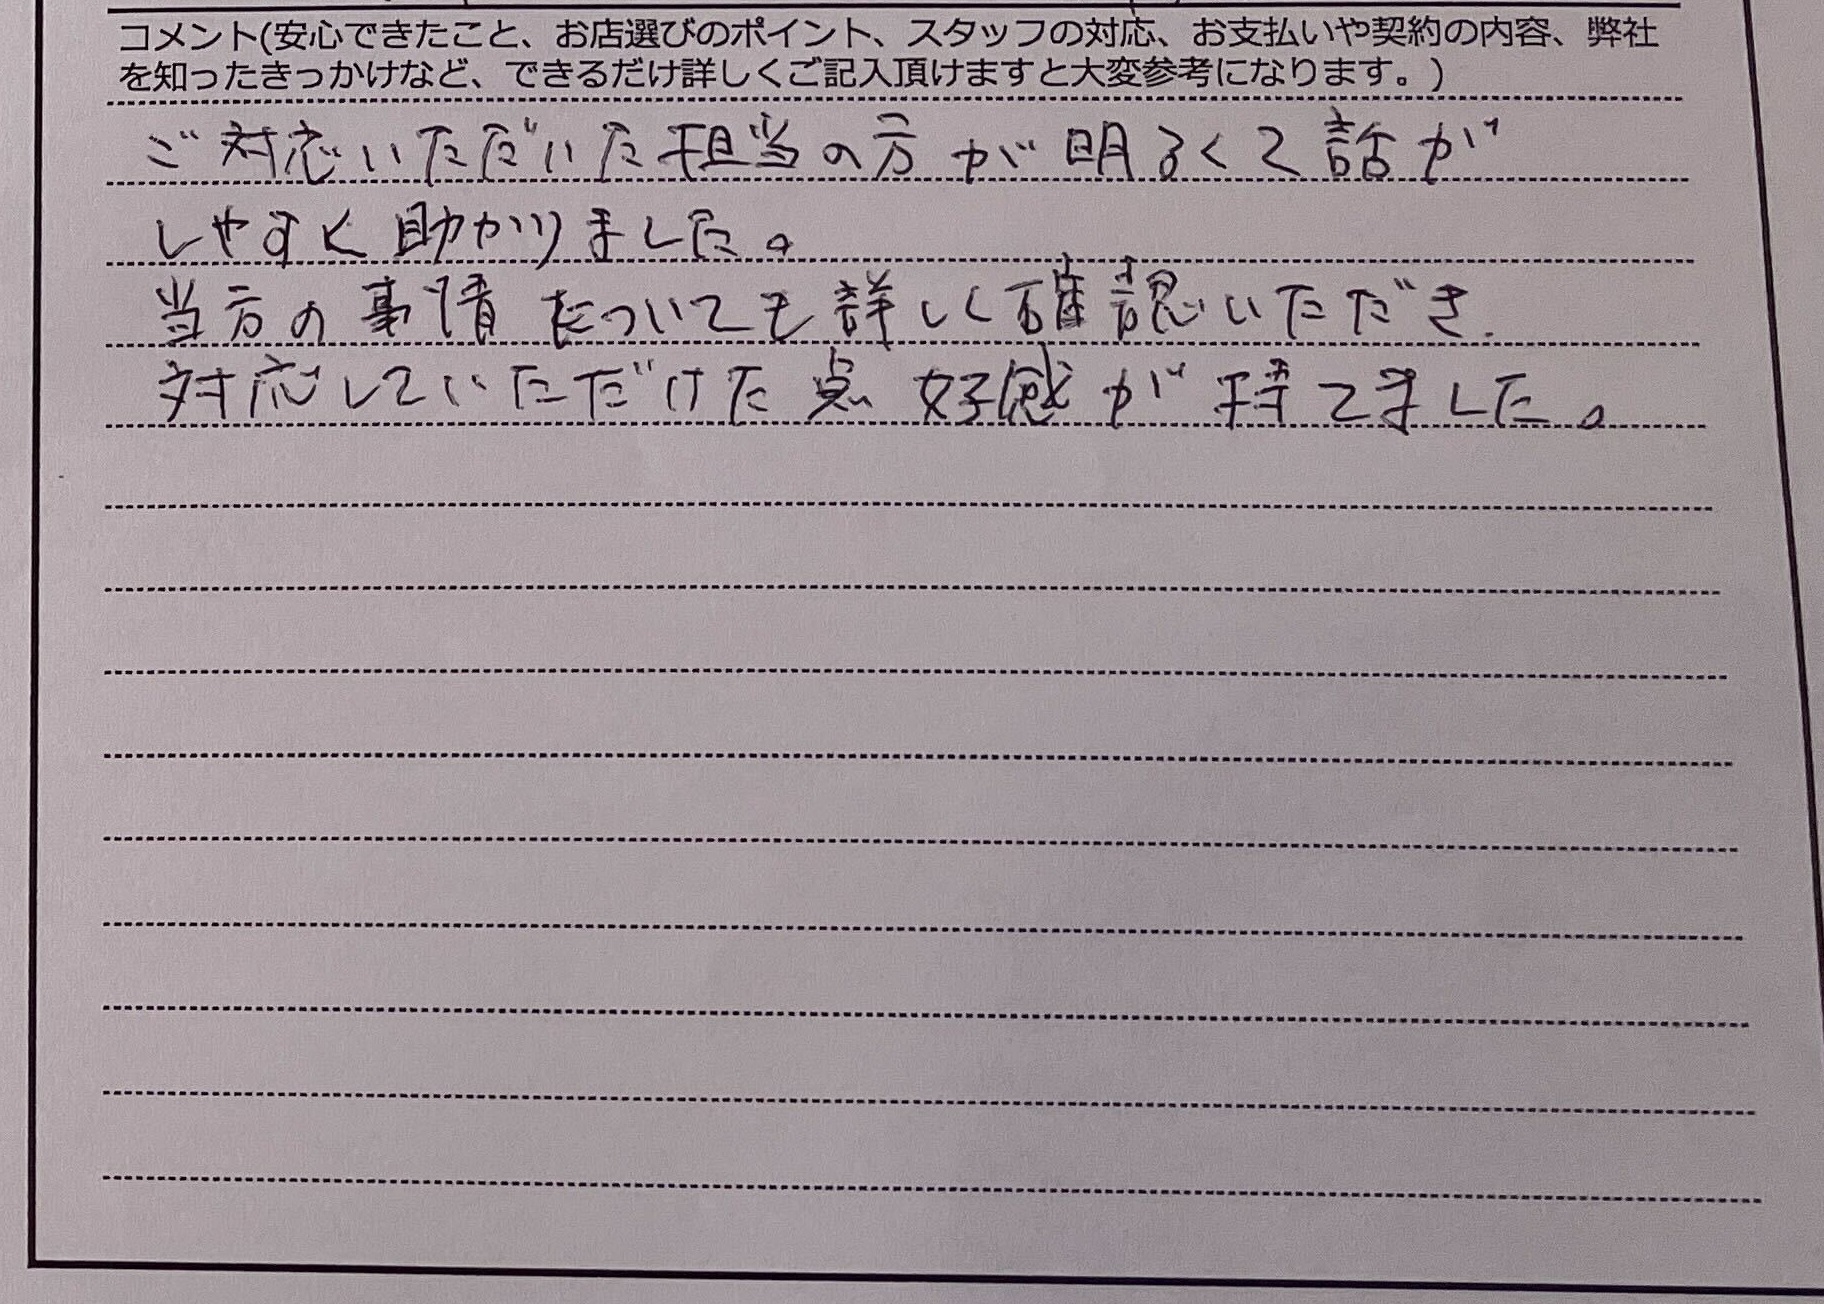 コメント(安心できたこと、お店選びのポイント、スタッフの対応、お支払いや契約の内容、弊社
を知ったきっかけなど、できるだけ詳しくご記入頂けますと大変参考になります。)
ご対応いただいた担当の方が明るくて話が
しやすく助かりました。
当方の事情についても詳しく確認いただき、
対応していただけた点好感が持てました。